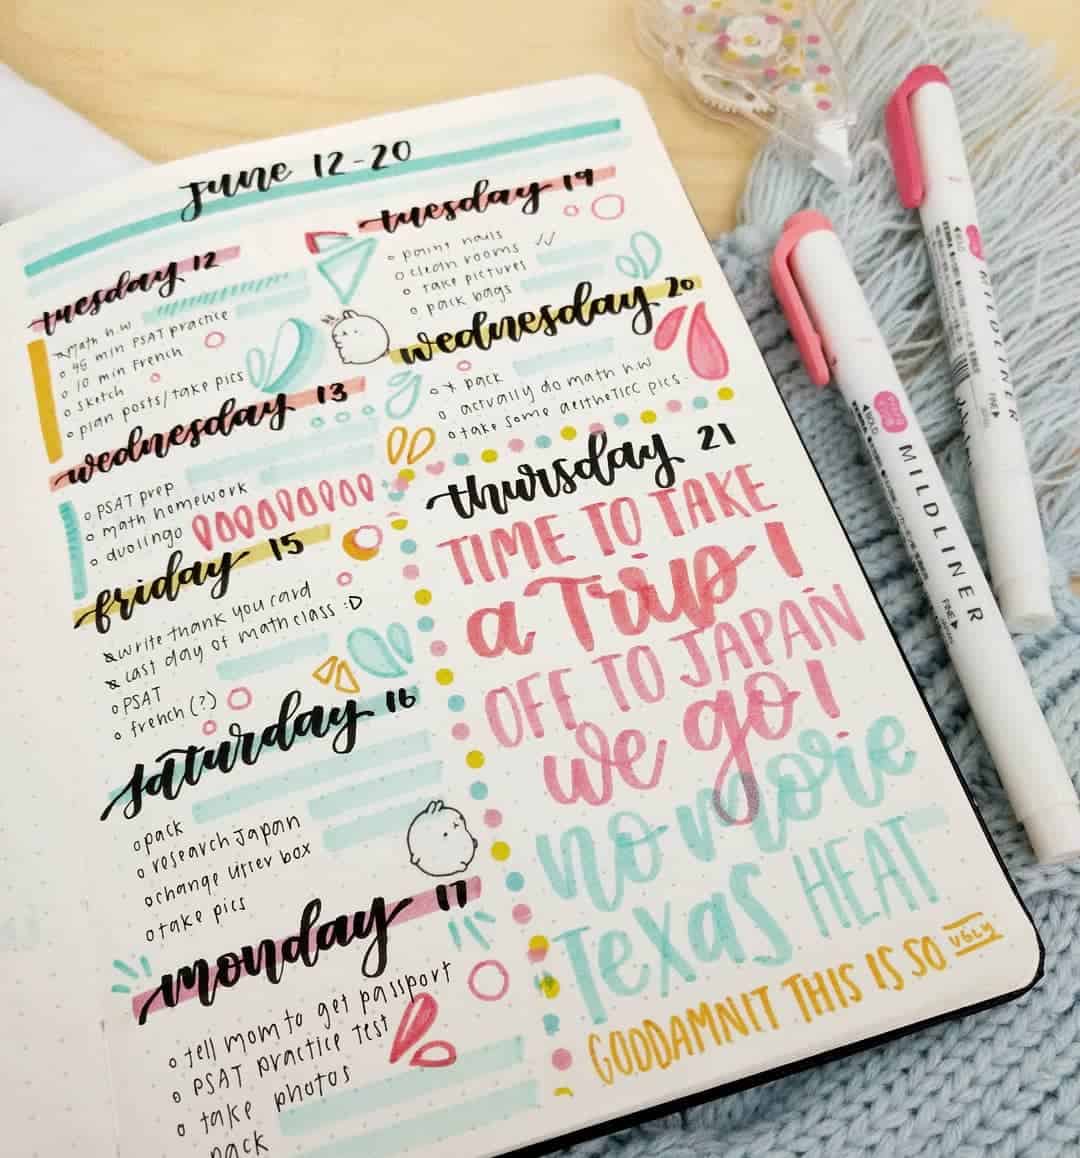 June 12-20
tuesday 12
math h.w
45 min PSAT practice
10 min French
sketch
plan posts/take pics
wednesday 13
PSAT prep
math homework
duolingo
friday 15
write thank you card
last day of math class :D
PSAT
french (?)
saturday 16
pack
research Japan
change litter box
take pics
monday 17
tell mom to get passport
PSAT practice test
take photos
pack
tuesday 19
paint nails
clean rooms
take pictures
pack bags
wednesday 20
* pack
actually do math h.w
take some aestheticc pics.
thursday 21
TIME TO TAKE
a Trip!
OFF TO JAPAN
we go!
no more
Texas HEAT
GODDAMNIT THIS IS SO UGLY
MILDLINER
FINE
BOLD
MILDLINER
FINE
BOLD